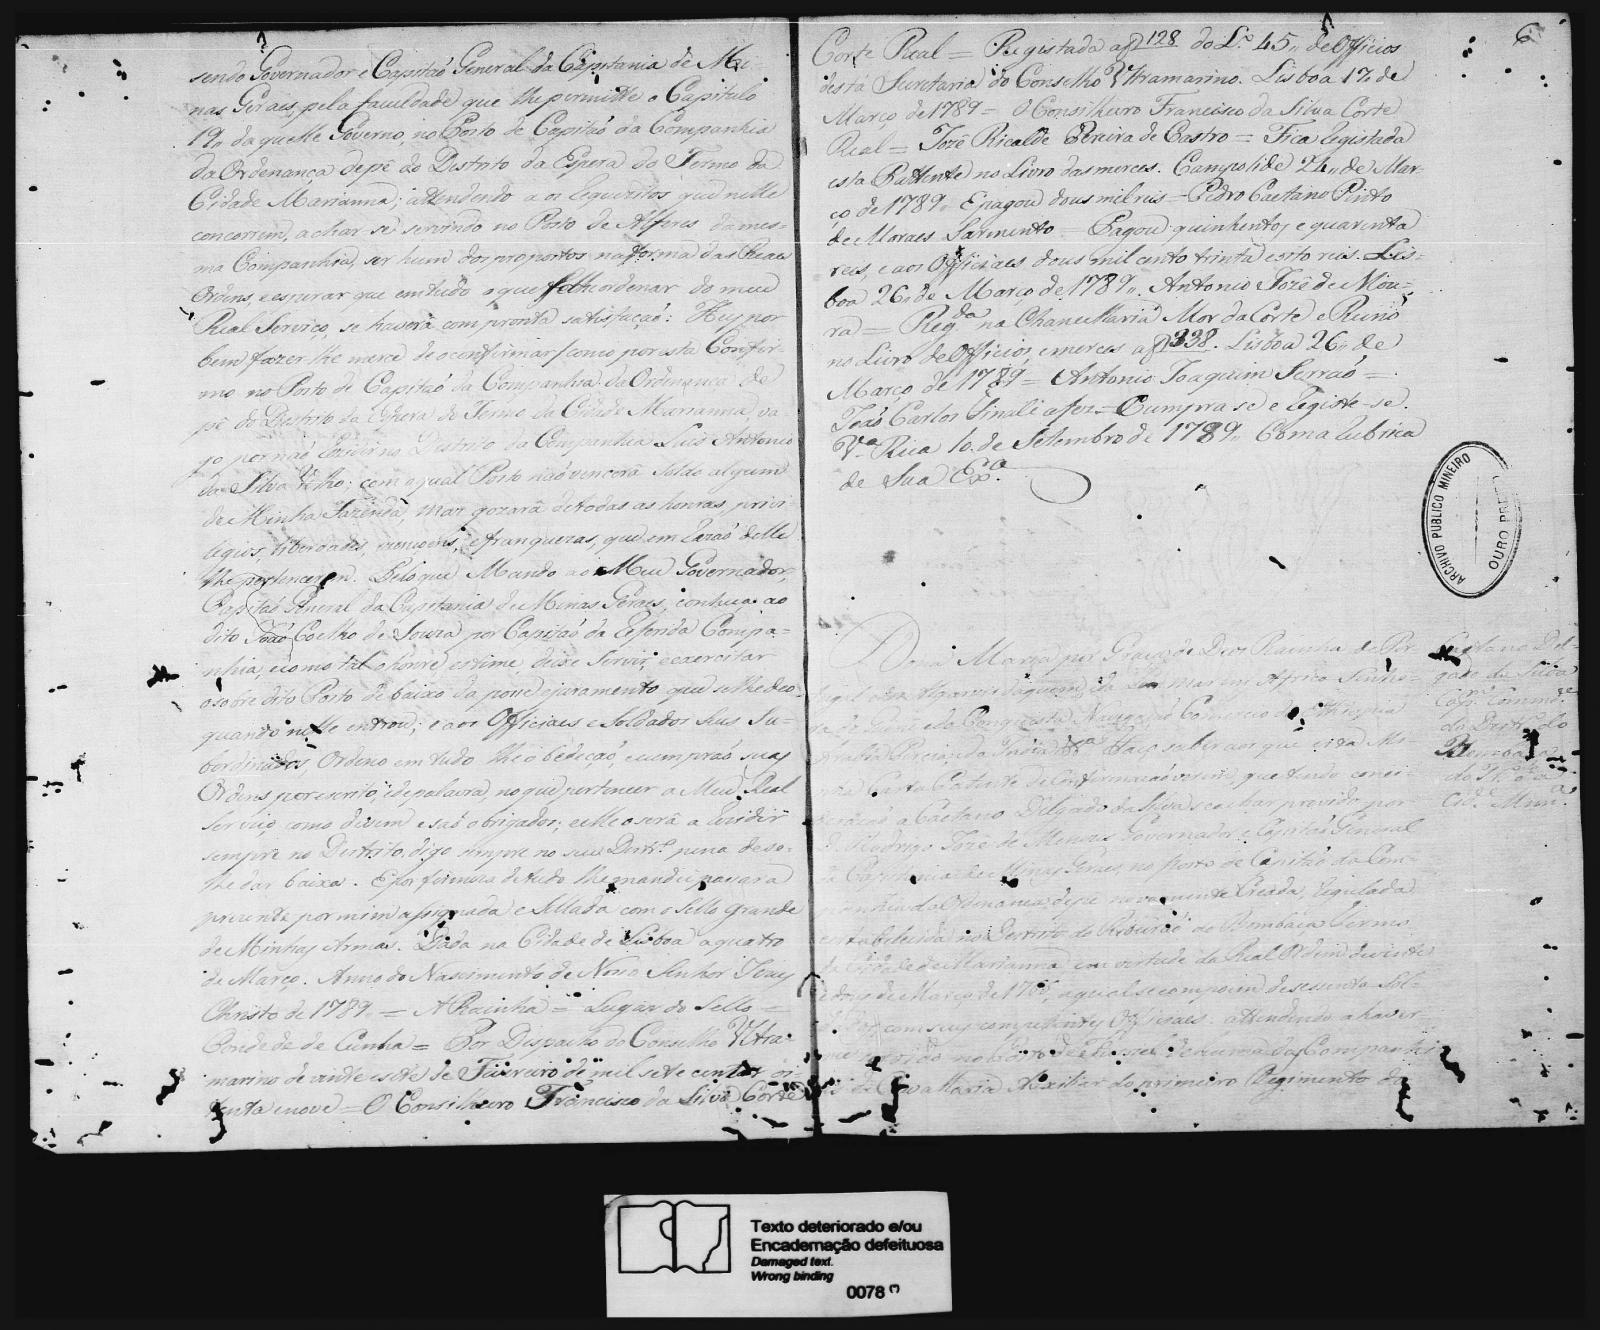 sendo Governador e Capitaõ General da Capitania de Mi-
nas Geraes, pela faculdade que lhe permitte o Capitulo
19 daquelle Governo, no Posto de Capitaõ da Companhia
da Ordenança de pé do Destrito da Espera do Termo da
Cidade Marianna; attendendo a os requezitos que nelle
concorrem, achar se servindo no Posto de Alferes da mes-
ma Companhia, ser hum dos propostos na forma das Reaes
Ordens, e esperar que em tudo o que
ordenar do meu
Real Serviço, se haverá com pronta satisfaçaõ: Hey por
bem fazer lhe merce de o confirmar/como por esta Confir-
mo no Posto de Capitaõ da Companhia da Ordenança de
pé do Destrito da Espera do Termo da Cidade Marianna, va-
go por naõ rezidir no Destrito da Companhia Luis Antonio
da Silva Velho; com o qual Posto naõ vencerá soldo algum
de Minha Fazenda, mas gozará de todas as honras, privi-
legios, liberdades, izençoens, e franquezas, que em razaõ delle
lhe pertencerem. Pelo que Mando ao Meu Governador,
Capitaõ General da Capitania de Minas Geraes, conheça ao
dito Joaõ Coelho de Souza por Capitaõ da referida Compa-
nhia, e como tal o honre, estime, deixe servir, e exercitar
o sobre dito Posto de baixo da posse, e juramento que se lhe deo
quando nelle entrou; e aos Officiaes e Soldados seus Su-
bordinados Ordeno em tudo lhe obedeçaõ, e cumpraõ suas
Ordens por escrito, e de palavra, no que pertencer a Meu Real
Serviço como devem e saõ obrigados; e elle será a rezidir
sempre no Destrito, digo sempre no seu Destr.º pena de se
lhe dar baixa. E por firmeza de tudo lhe mandei passar a
prezente por mim assignada e sellada com o sello grande
de Minhas Armas. Dada na Cidade de Lisboa a quatro
de Março. Anno do Nascimento de Nosso Senhor Jesus
Christo de 1789 = A Rainha = Lugar do Sello =
Conde de Cunha = Por Despacho do Conselho Ultra-
marino de vinte e sete de Fevereiro de mil sete centos oi-
tenta e nove = O Conselheiro Francisco da Silva Corte
6
Corte Real = Registada a f 128 do L.º 45,, de Officios
desta Secretaria do Conselho Ultramarino. Lisboa 17 de
Março de 1789 = O Conselheiro Francisco da Silva Corte
Real = Jozé Ricalde Pereira de Castro = Fica registada
esta Pattente no Livro das merces. Campolide 24,, de Mar-
ço de 1789,, E pagou dous mil reis = Pedro Caetano Pinto
de Moraes Sarmento = Pagou quinhentos e quarenta
reis, e aos Officiaes dous mil cento trinta e oito reis. Lis-
boa 26,, de Março de 1789,, Antonio Jozé de Mou-
ra = Reg.da na Chancellaria Mor da Corte e Reino
no Livro de Officios, e merces a f 338. Lisboa 26,, de
Março de 1789 = Antonio Joaquim Serraõ =
Joaõ Carlos Finali a fez = Cumpra se e registe-se.
V.ª Rica 10. de Setembro de 1789,, Com a rubrica
de Sua Ex.ª
ARCHIVO PUBLICO MINEIRO
OURO PRETO
Caetano Del-
gado da Silva
Cap.m Comm.e
do Destr.º do
Bombaça
do Th.º da
Cid.e Mar.ª
Dona Maria por Graça de Deos Rainha de Por-
tugal dos Algarves daquem, da Lem mar em Africa Senho-
ra de Guiné e da Conquista Navegaçaõ Comercio de Ethiopia
Arabia Percia e da India &.ª Faço saber aos que esta Mi-
nha Carta Patente de Confirmaçaõ virem, que tendo consi-
deraçaõ a Caetano Delgado da Silva se achar provido por
D. Rodrigo Jozé de Menezes Governador e Capitaõ General
da Capitania de Minas Geraes, no posto de Capitaõ da Com-
panhia da Ordenança de pé novamente Creada, regulada
e estabelecida no Destrito do Ribeiraõ do Bombaça Termo
da Cidade de Marianna em virtude da Real Ordem de vinte
e dous de Março de 1766, a qual se compoem de sessenta Sol-
dados com seus competentes Officiaes. attendendo a haver
me servido no Posto de Furriel de huma das Companhi
as de Cavallaria Auxiliar do primeiro Regimento da
Texto deteriorado e/ou
Encadernação defeituosa
Damaged text.
Wrong binding
0078 (*)